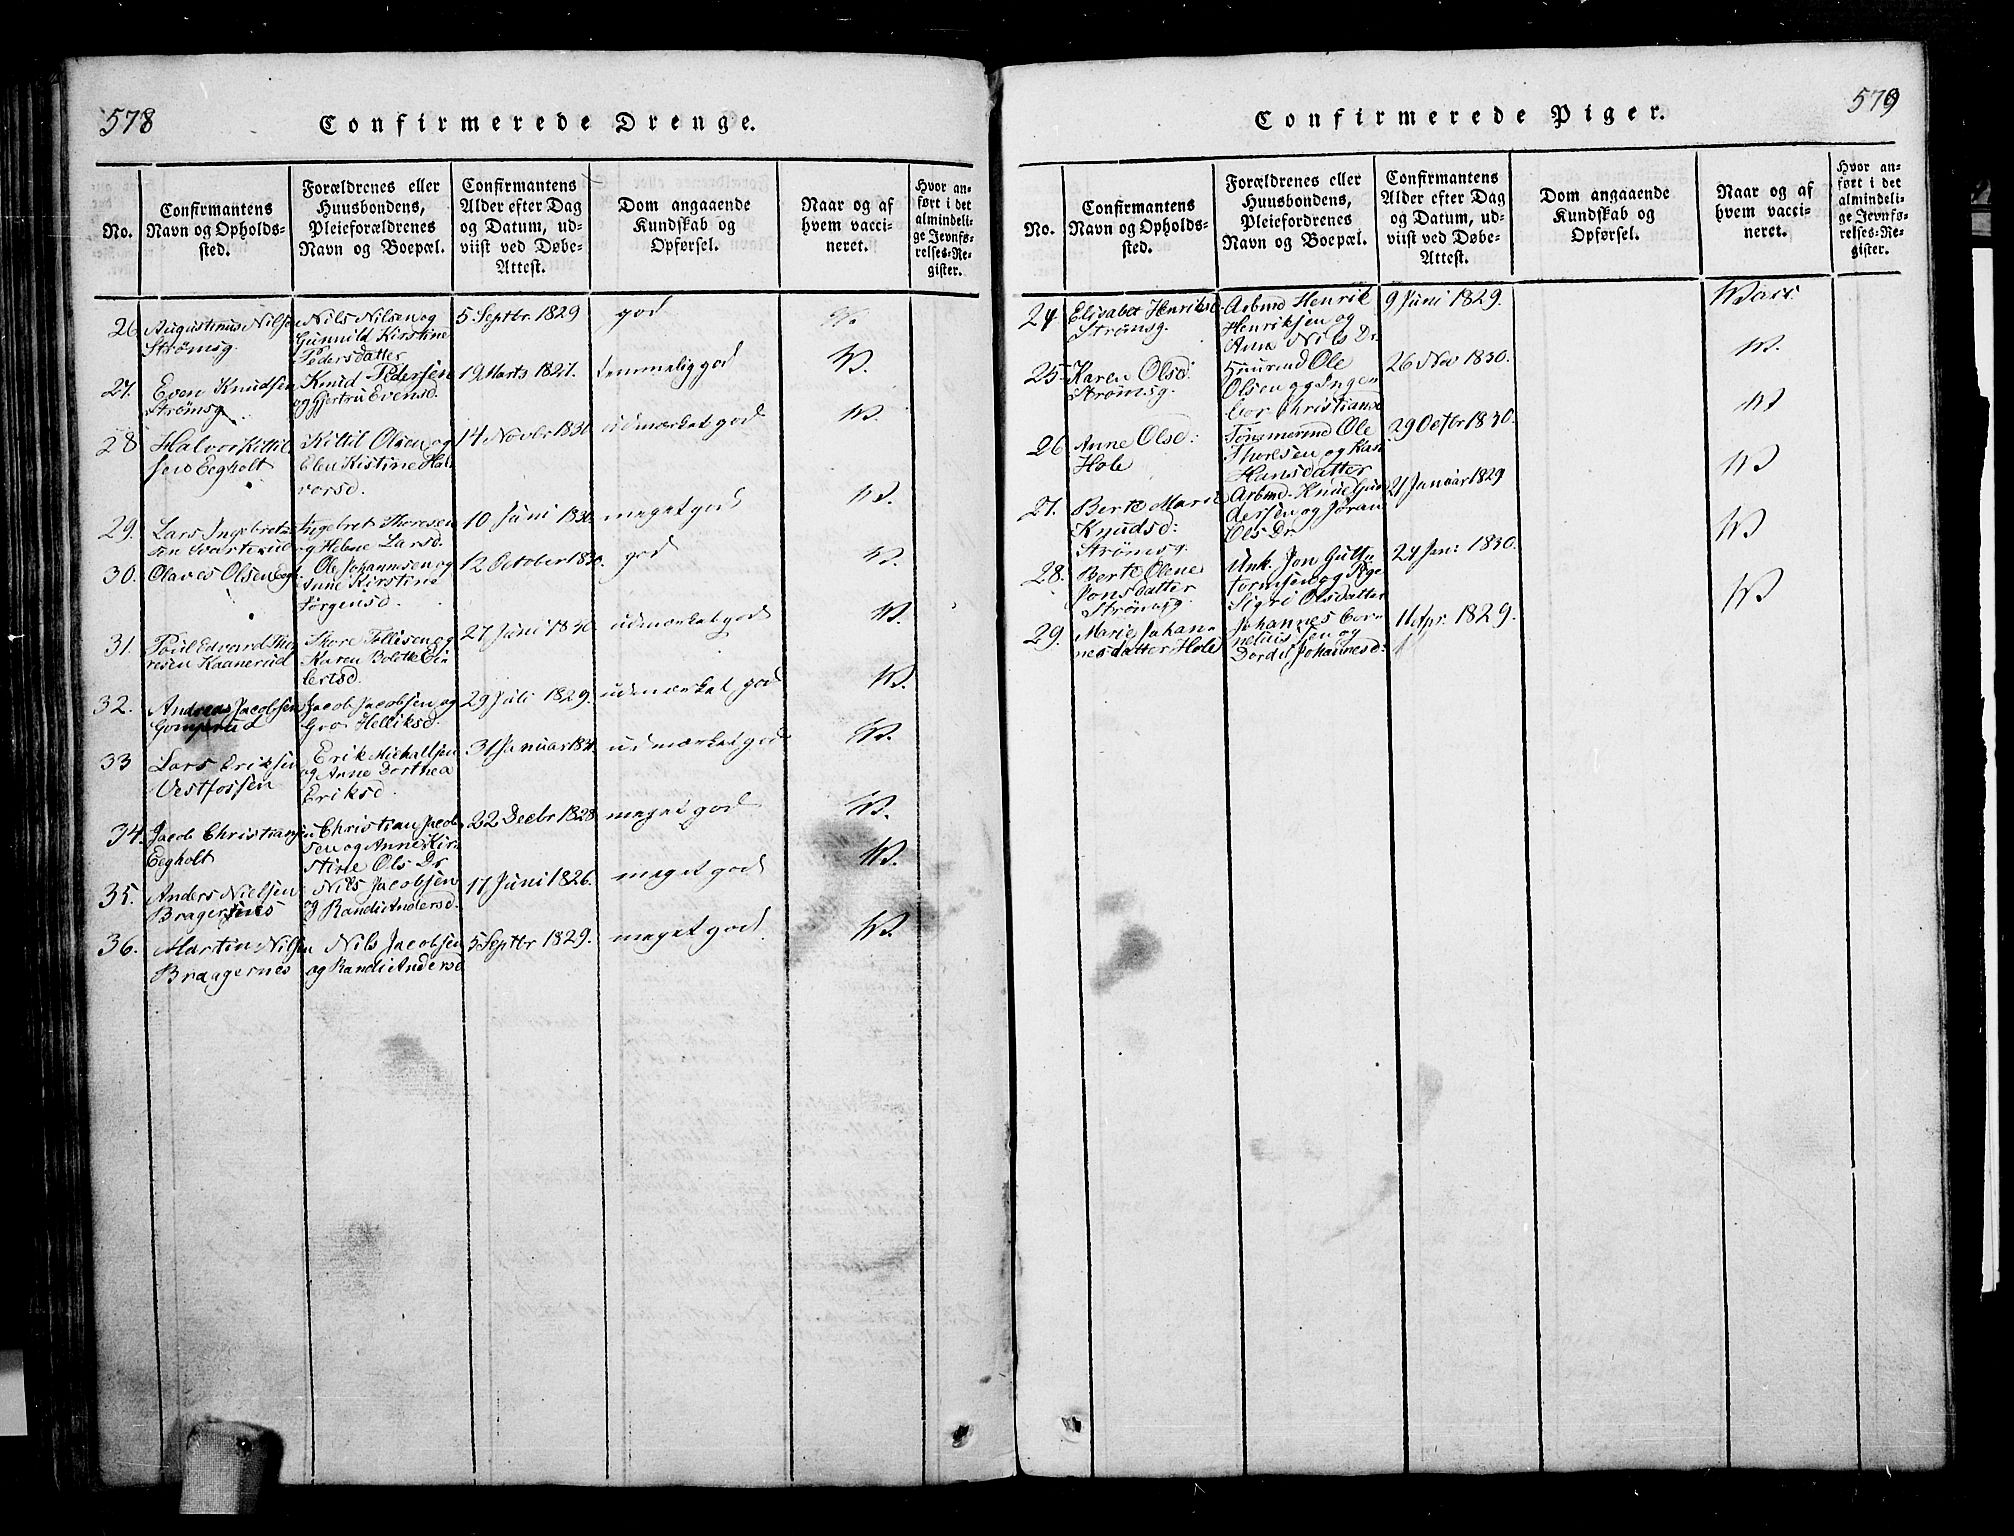 578
Confirmerede Drenge.
No.
Confirmantens
Navn og Opholds-
sted.
Forældrenes eller
Huusbondens,
Pleieforældrenes
Navn og Boepæl.
Confirmantens
Alder efter Dag
og Datum, ud-
viist ved Døbe-
Attest.
Dom angaaende
Kundskab og
Opførsel.
Naar og af
hvem vacci-
neret.
Hvor an-
ført i det
almindeli-
ge Jevnfø-
relses-Re-
gister.
26 Augustinus Nilsen
Strømsg.
Nils Nilsen og
Gunnild Kirstine
Pedersdatter
5 Septbr 1829
god
W.
27. Even Knudsen
Strømsg.
Knud Pedersen
og Gjertru Evensd.
19 Marts 1827.
temmelig god
W.
28 Halvor Kittil
sen Eegholt
Kittil Olsen og
Elen Kistine Hal
vorsd.
14 Novbr 1830
udmærket god
W.
29. Lars Ingebret
sen Svarterud
Ingebret Thoresen
og Helene Larsd.
10 Juni 1830.
meget god
W.
30. Olaves Olsen
Ole Johannsen og
Anne Kirstine
Jørgensd.
12 October 1830.
god
W.
31. Poul Edvard Tho
resen Kaanerud
Thore Tollisen og
Karen Bolette Ein
lertsd.
27 Juni 1830
udmærket god
W.
32. Andreas Jacobsen
Gomperud
Jacob Jacobsen og
Gro Helliksd.
29 Juli 1829.
udmærket god
W.
33 Lars Eriksen
Vestfossen
Erik Michallsen
og Anne Dorthea
Eriksd.
31 Januar
udmærket god
W.
34. Jacob Christiansen
Eegholt
Christian Jacob
sen og Anne Kir
stine Ols Dr
22 Decbr 1828
meget god
W.
35. Anders Nielsen
Bragernes
Nils Jacobsen
og Randi Andersd.
17 Juni 1826.
meget god
W.
36. Martin Nilsen
Bragernes
Nils Jacobsen
og Randi Andersd
5 Septbr 1829.
meget god
W.
579
Confirmerede Piger.
No.
Confirmantens
Navn og Opholds-
sted.
Forældrenes eller
Huusbondens,
Pleiefordrenes
Navn og Boepæl.
Confirmantens
Alder efter Dag
og Datum, ud-
viist ved Døbe-
Attest.
Dom angaaende
Kundskab og
Opførsel.
Naar og af
hvem vacci-
neret.
Hvor an-
ført i det
almindeli-
ge Jevnfø-
relses-Re-
gister.
24 Elisabet Henriksd
Strømsg.
Arbmd Henrik
Henriksen og
Ane Nils Dr.
9 Juni 1829.
Wacc.
25 Karen Olsd:
Strømsg.
Ole
Olsen og Inge
bor Christians
26 Nov 1830.
W.
26 Anne Olsd:
Hole
Tømmermd Ole
Thoresen og Kari
Hansdatter
29 Octbr 1830.
W
27. Berte Marie
Knudsd:
Strømsg.
Arbmd. Knud Gun
dersen og Jøran
Ols Dr
21 Januar 1829
W
28. Berte Olene
Jonsdatter
Strømsg.
Unk. Jon Gutt
tormsen og Pige
Sigri Olsdatter
24 Jan: 1830.
W
29. Marie Johan-
nesdatter Hole
Johannes Cor
neliussen og
Dordi Johannesd:
11 Apr. 1829.
W